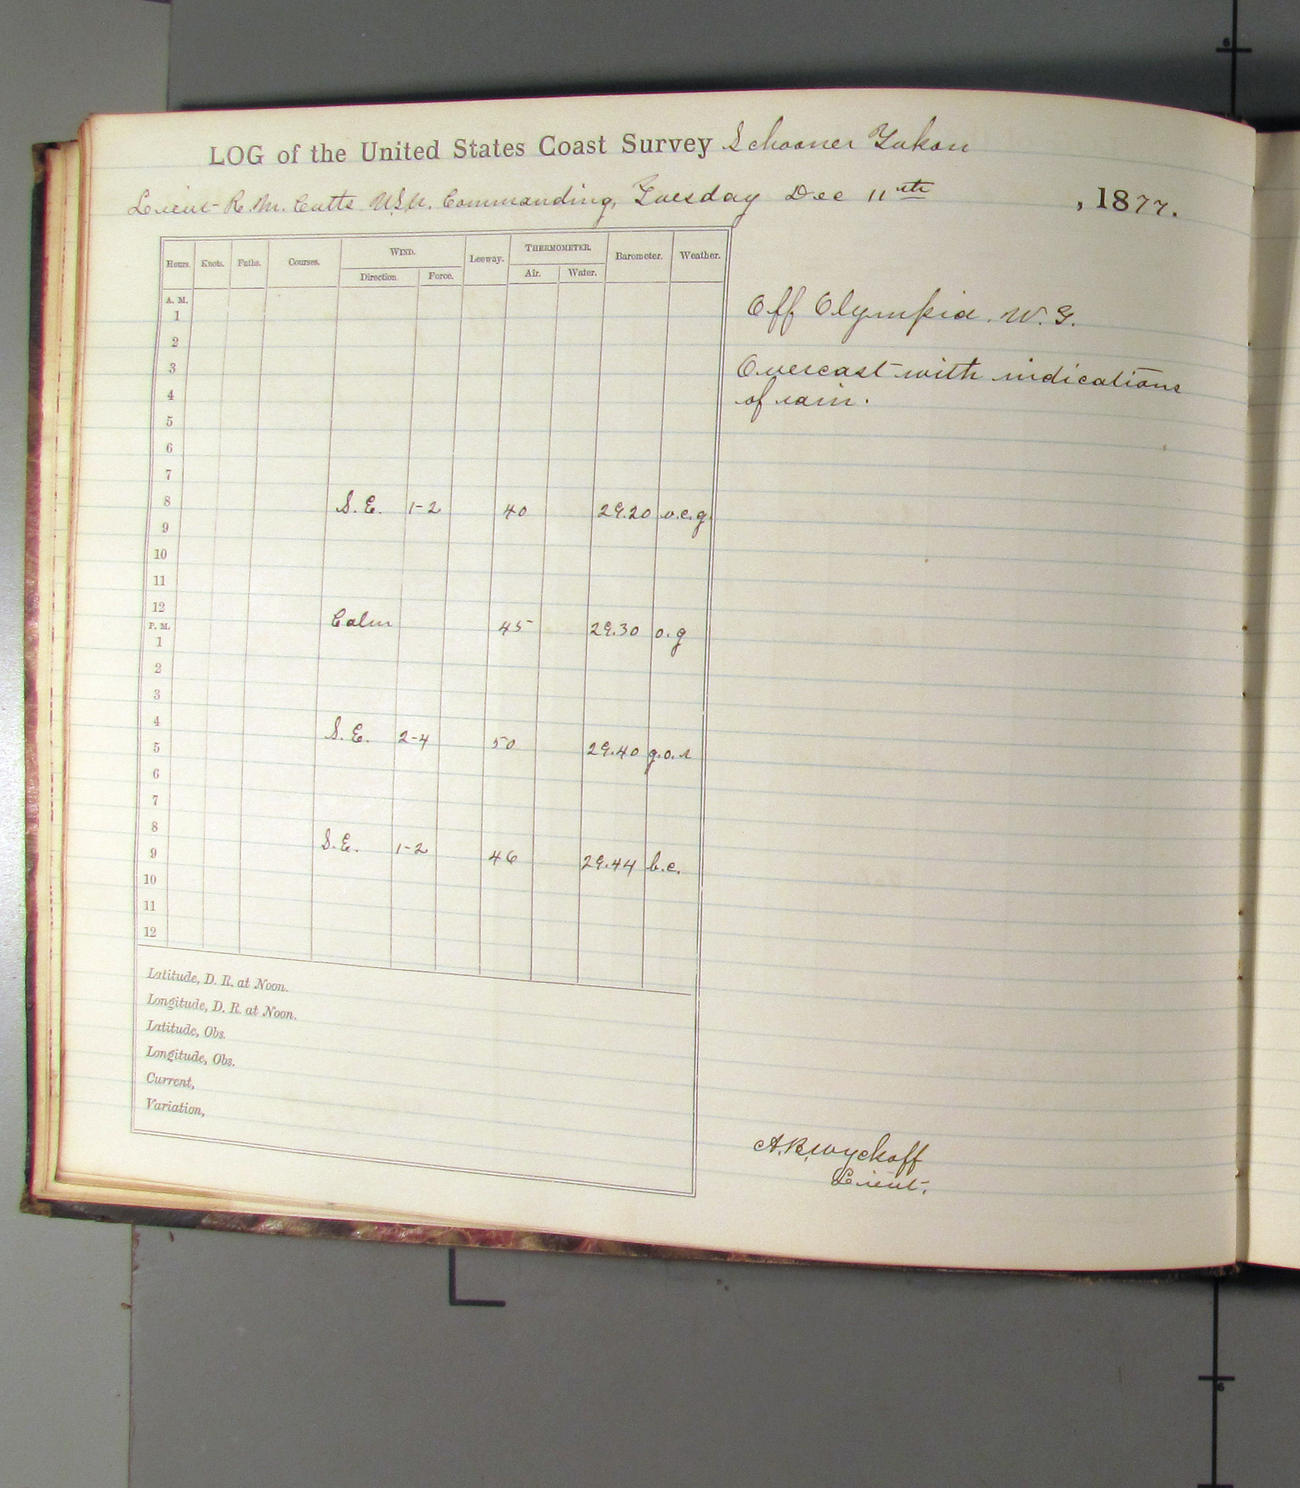 LOG of the United States Coast Survey Schooner Yukon
Lieut R. M. Cutts U.S.N. Commanding, Tuesday Dec 11th , 1877.
Hours. Knots. Faths. Courses. WIND. Leeway. THERMOMETER. Barometer. Weather.
Direction. Force. Air. Water.
A. M.
1
Off Olympia. W. T.
2
3
Overcast with indications
4
of rain.
5
6
7
8 S. E. 1-2 40 29.20 o.c.g.
9
10
11
12 Calm 45 29.30 o.g
P. M.
1
2
3
4 S. E. 2-4 50 29.40 g.o.r
5
6
7
8 S. E. 1-2 46 29.44 b.c.
9
10
11
12
Latitude, D. R. at Noon.
Longitude, D. R. at Noon.
Latitude, Obs.
Longitude, Obs.
Current,
Variation,
A. B. Wyckoff
Lieut.
6
6